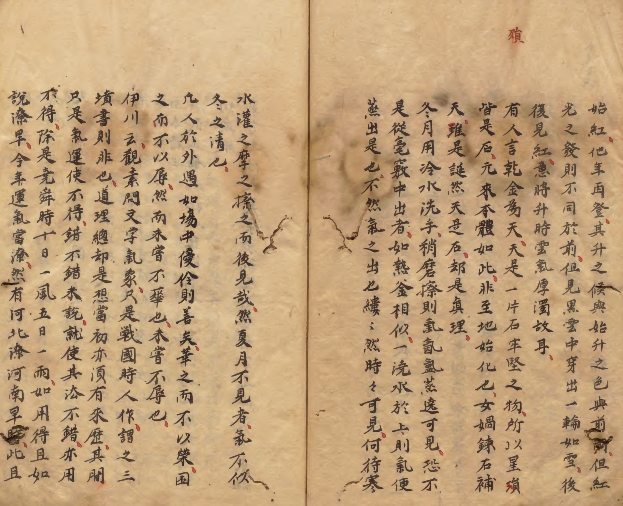 始紅他年再登其升之候與始升之色與前同但紅
光之發則不同於前但見黑雲中穿出一輪如雪後
復見紅意將升時雲氣厚濁故耳
有人言乾金為天天是一片石牢堅之物所以星隕
皆是石元來本體如此非至地始化也女媧鍊石補
天雖是誕然天是石却是真理
冬月用冷水洗手稍磨擦則氣氤氳蒸遠可見恐不
是從毫竅中出者如熱釜相似一澆水於上則氣便
蒸出是也不然氣之出也縷〻然時〻可見何待寒
水灌之摩之擦之而後見哉然夏月不見者氣不似
冬之清也
凡人於外遇如場中優伶則善矣華之而不以榮困
之而不以辱然而未嘗不華也未嘗不辱也
伊川云觀素問文字氣象只是戰國時人作謂之三
墳書則非也道理總却是想當初亦須有來歷其間
只是氣運使不得錯不錯未說就使其法不錯亦用
不得除是堯舜時十日一風五日一雨如用得且如
說潦旱今年運氣當潦然有河北潦河南旱此且
隕